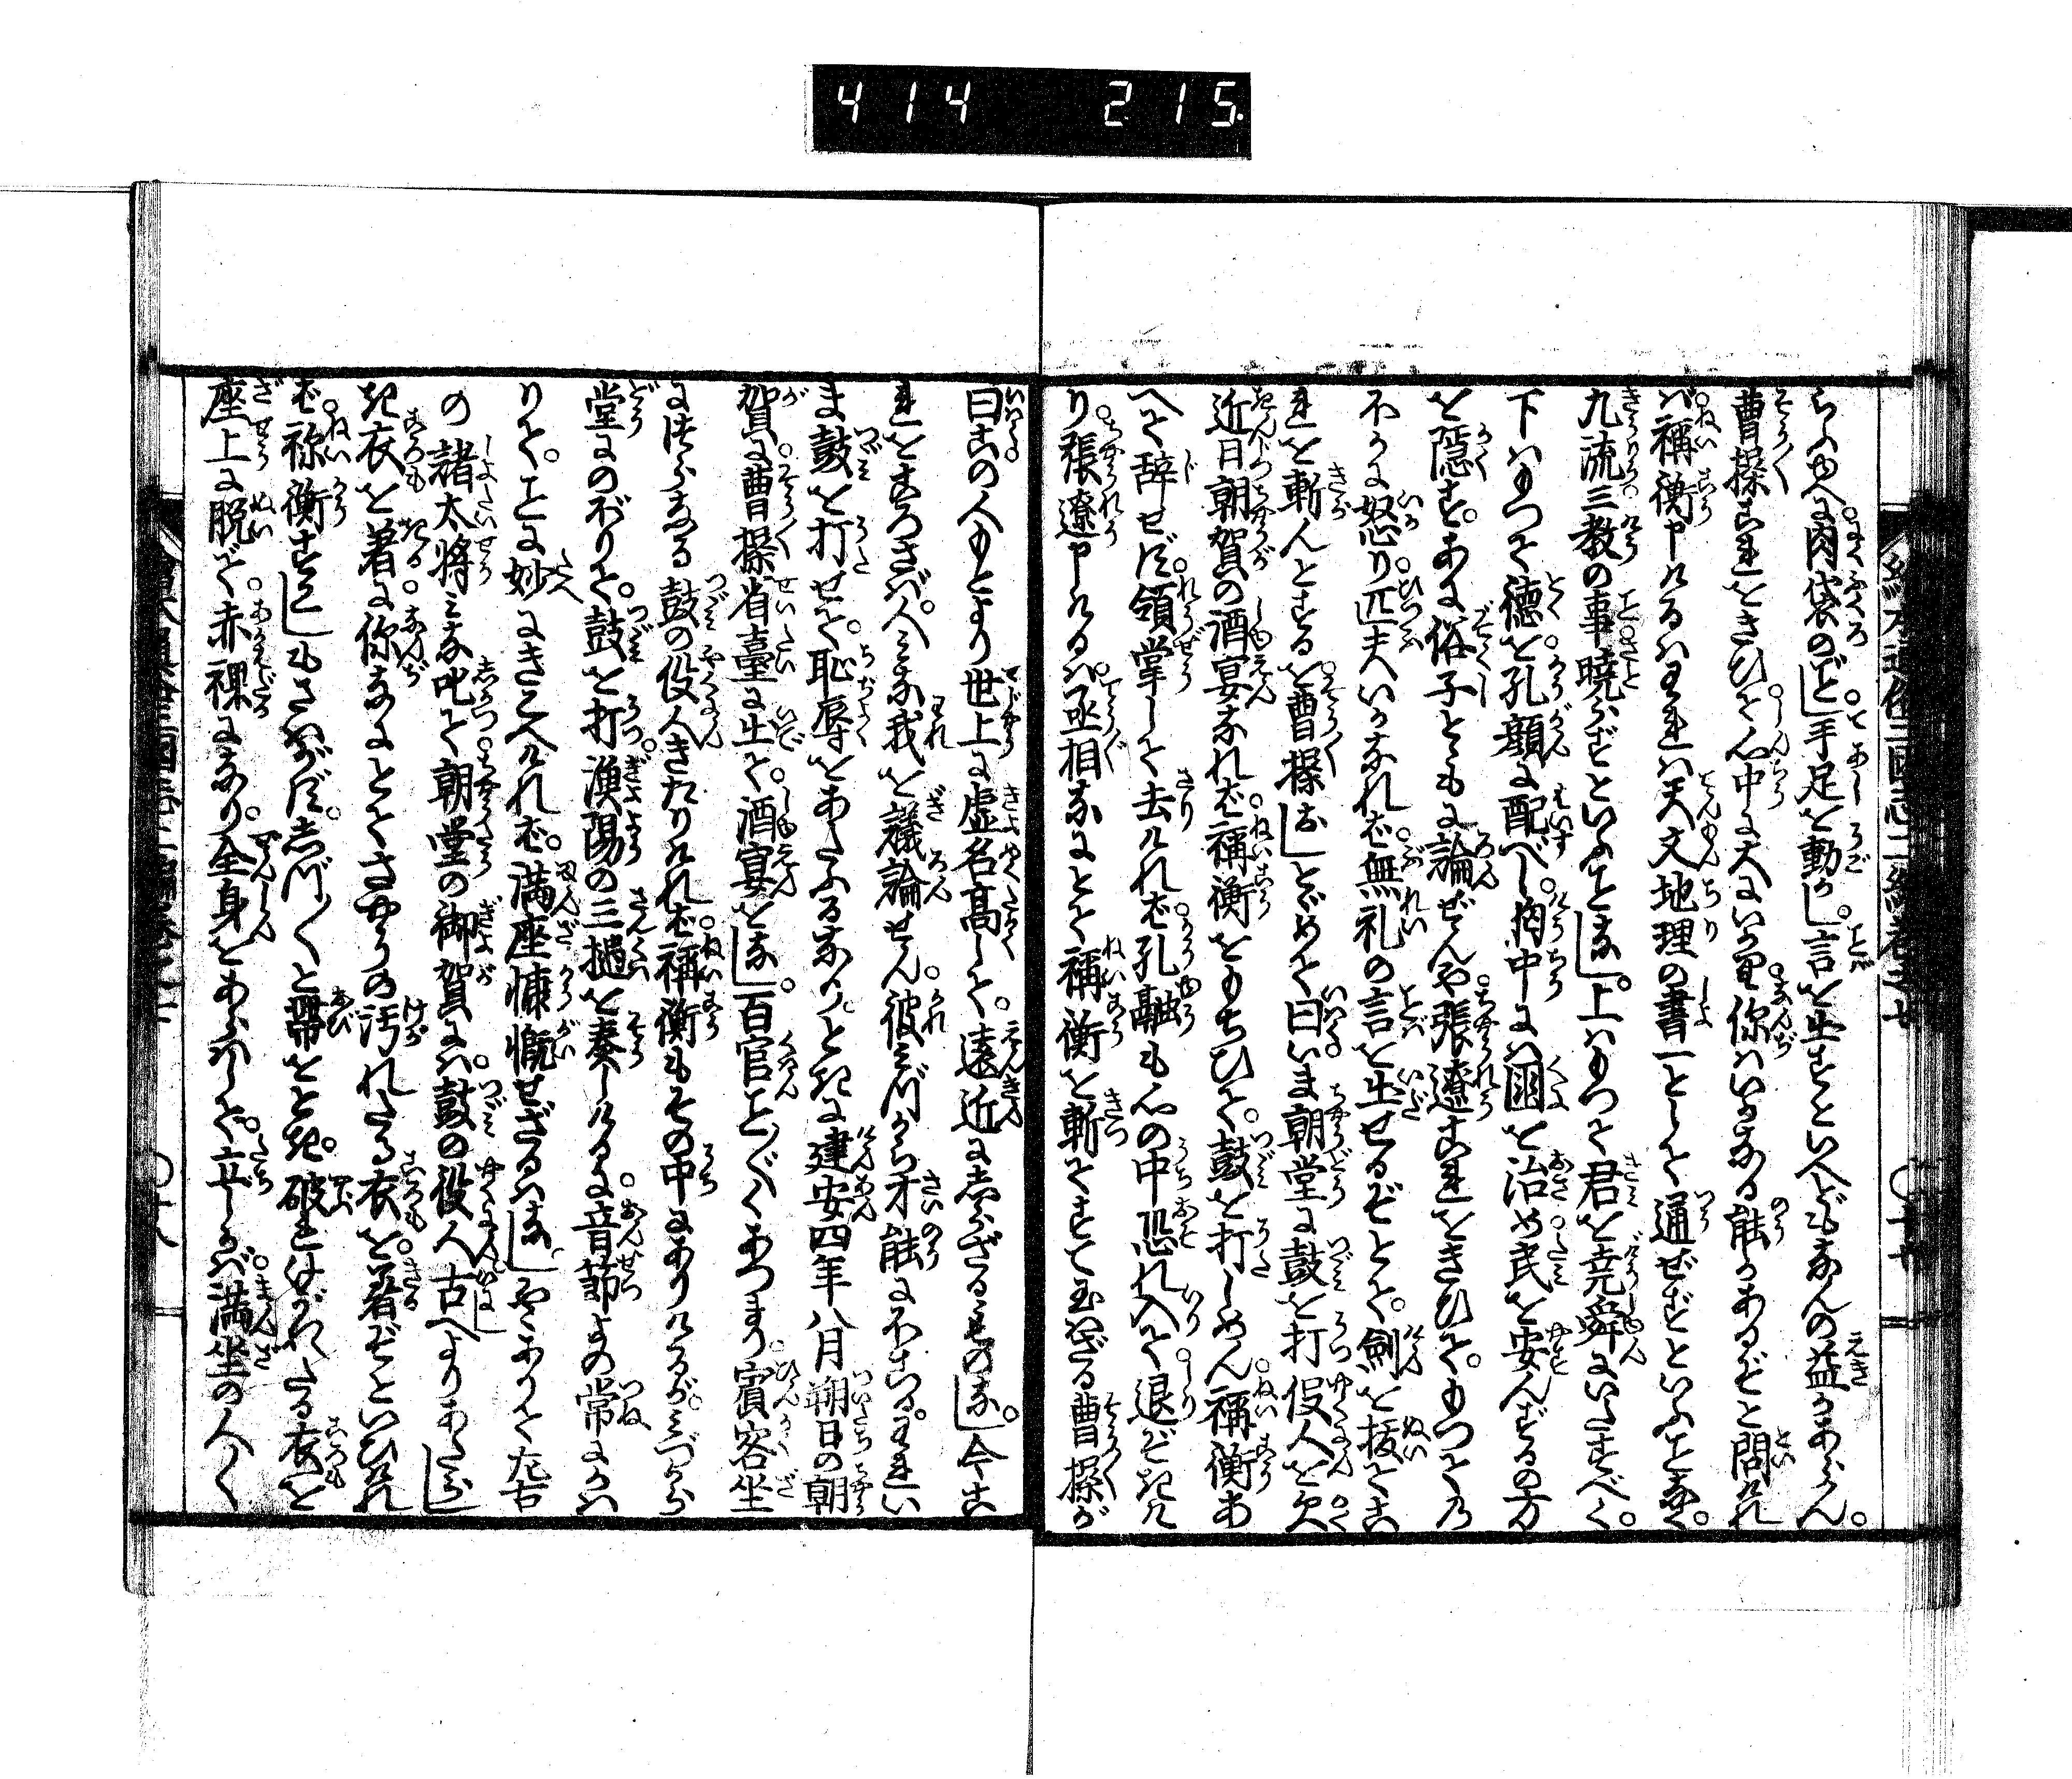 414 215
らふゆへに肉袋のごとし手足を動かし言を出すといへどもなんの益かあらん。
曹操これをきひて心中に大にいかり你はいかなる能かあるぞと問けれ
ば禰衡申けるはわれは天文地理の書一として通ぜずといふことなく。
九流三教の事暁らずといふことなし。上はもつて君を堯舜にいたすべく。
下はもつて徳を孔顔に配べし胸中には國を治め民を安んずるの方
を隠す。あに俗子とともに論ぜんや張遼これをきひて。もつての
外かに怒り匹夫いかなれば無礼の言を出せるぞとて。劍を抜てこ
れを斬んとするを曹操おしとゞめて曰いま朝堂に鼓を打役人を欠
近日朝賀の酒宴なれば禰衡をもちひて。鼓を打しめん禰衡あ
へて辞せず。領掌して去ければ孔融も心の中恐れ入て退ぞきけ
り張遼申けるは丞相なにとて禰衡を斬てすて玉はざる曹操が
曰この人もとより世上に虚名高して。遠近にしらざるものなし。今こ
れをころさば。人みな我を議論せん彼みづから才能にほこる。われい
ま鼓を打せて。恥辱をあたふるなりとき に建安四年八月朔日の朝
賀に曹操省臺に出て。酒宴をなし。百官ことごとくあつまり賓客坐
につらなる鼓の役人きたりければ禰衡もその中にありけるが。みづから
堂にのぼりて。鼓を打。漁陽の三撾を奏しけるに音節よの常にかは
りて。ことに妙にきこへければ。満座慷慨せざるはなし。やゝありて左右
の諸太将みな叱て朝堂の御賀には。鼓の役人古へよりあたらし
き衣を着に你なにとてさやうの汚れたる衣を着ぞといひけれ
ば。禰衡すこしもさはがず。しづ〱と帯をとき。破れけがれたる衣を
座上に脱で。赤裸になり。全身をあらはして。立しかば満坐の人〱